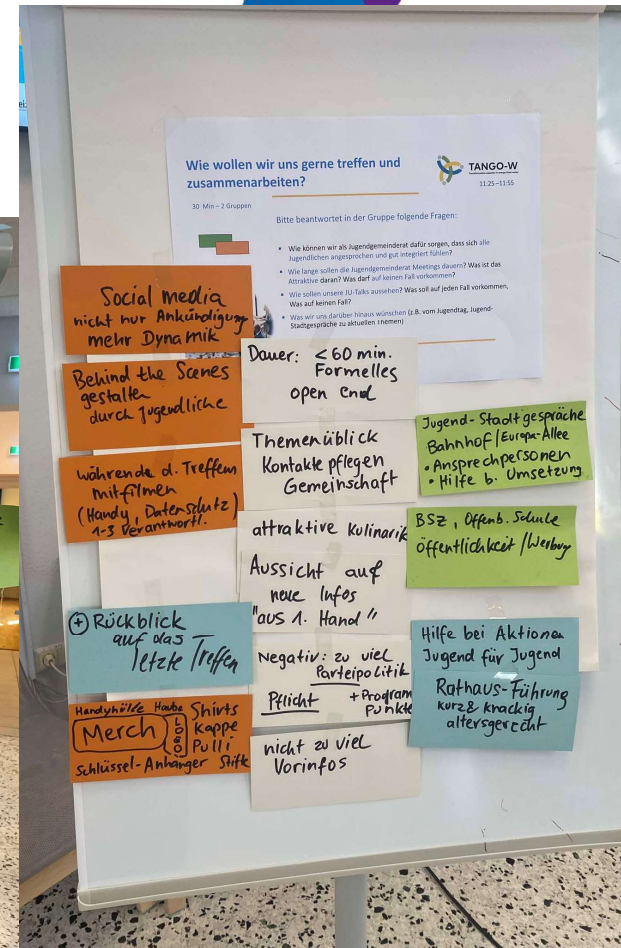 Wie wollen wir uns gerne treffen und
zusammenarbeiten?
TANGO-W
11:25 –11:55
30 Min – 2 Gruppen
Bitte beantwortet in der Gruppe folgende Fragen:
• Wie können wir als Jugendgemeinderat dafür sorgen, dass sich alle
Jugendlichen angesprochen und gut integriert fühlen?
• Wie lange sollen die Jugendgemeinderat Meetings dauern? Was ist das
Attraktive daran? Was darf auf keinen Fall vorkommen?
• Wie sollen unsere JU-Talks aussehen? Was soll auf jeden Fall vorkommen,
Was auf keinen Fall?
• Was wir uns darüber hinaus wünschen (z.B. vom Jugendtag, Jugend-
Stadtgespräche zu aktuellen Themen)
Social media
nicht nur Ankündigung
mehr Dynamik
Behind the Scenes
gestalten
durch Jugendliche
während d. Treffens
mitfilmen
(Handy, Datenschutz)
1-3 Verantwortl.
+ Rückblick
auf das
letzte Treffen
Handyhülle Haube Shirts
Merch LOGO Kappe
Pulli
Schlüssel-Anhänger Stift
Dauer: < 60 min.
Formelles
open end
Themenüblick
Kontakte pflegen
Gemeinschaft
attraktive Kulinarik
Aussicht auf
neue Infos
"aus 1. Hand"
Negativ: zu viel
Parteipolitik
Pflicht + Program
Punkte
nicht zu viel
Vorinfos
Jugend-Stadtgespräche
Bahnhof / Europa-Allee
• Ansprechpersonen
• Hilfe b. Umsetzung
BSZ, Offenb. Schule
öffentlichkeit / Werbung
Hilfe bei Aktionen
Jugend für Jugend
Rathaus-Führung
kurz & knackig
altersgerecht